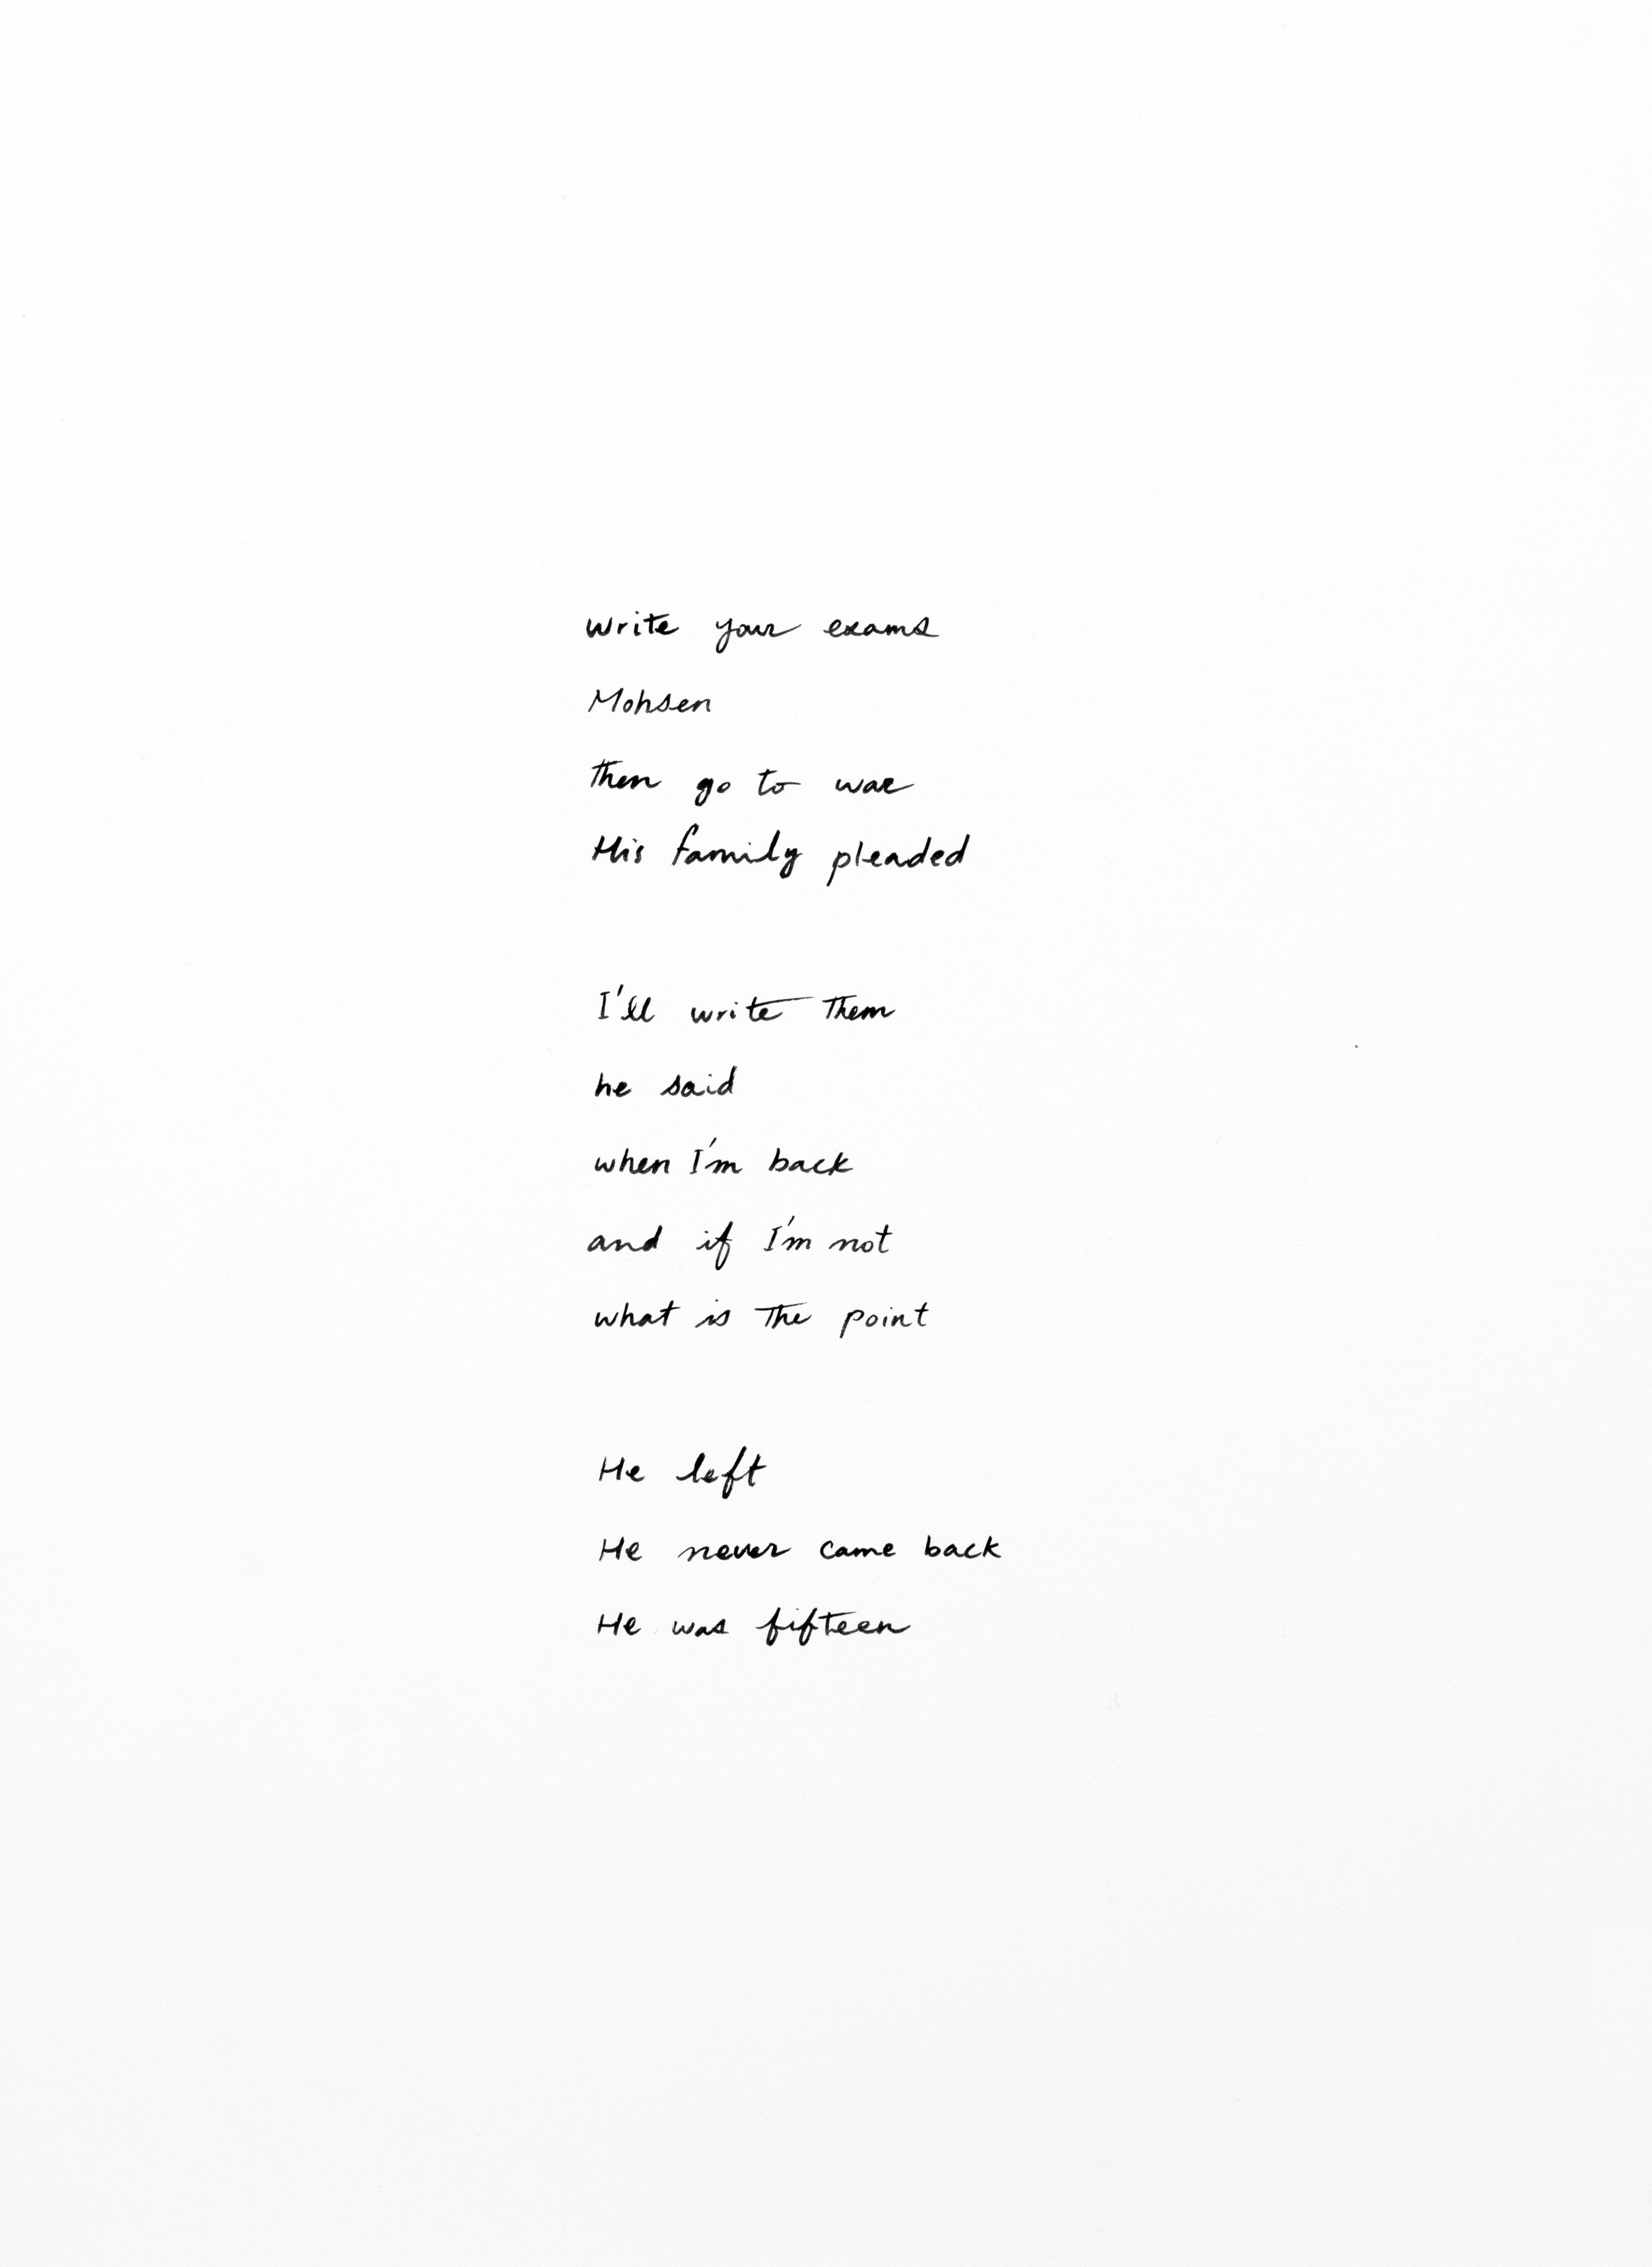 write your exams
Mohsen
Then go to war
His family pleaded
I'll write them
he said
when I'm back
and if I'm not
what is the point
He left
He never came back
He was fifteen